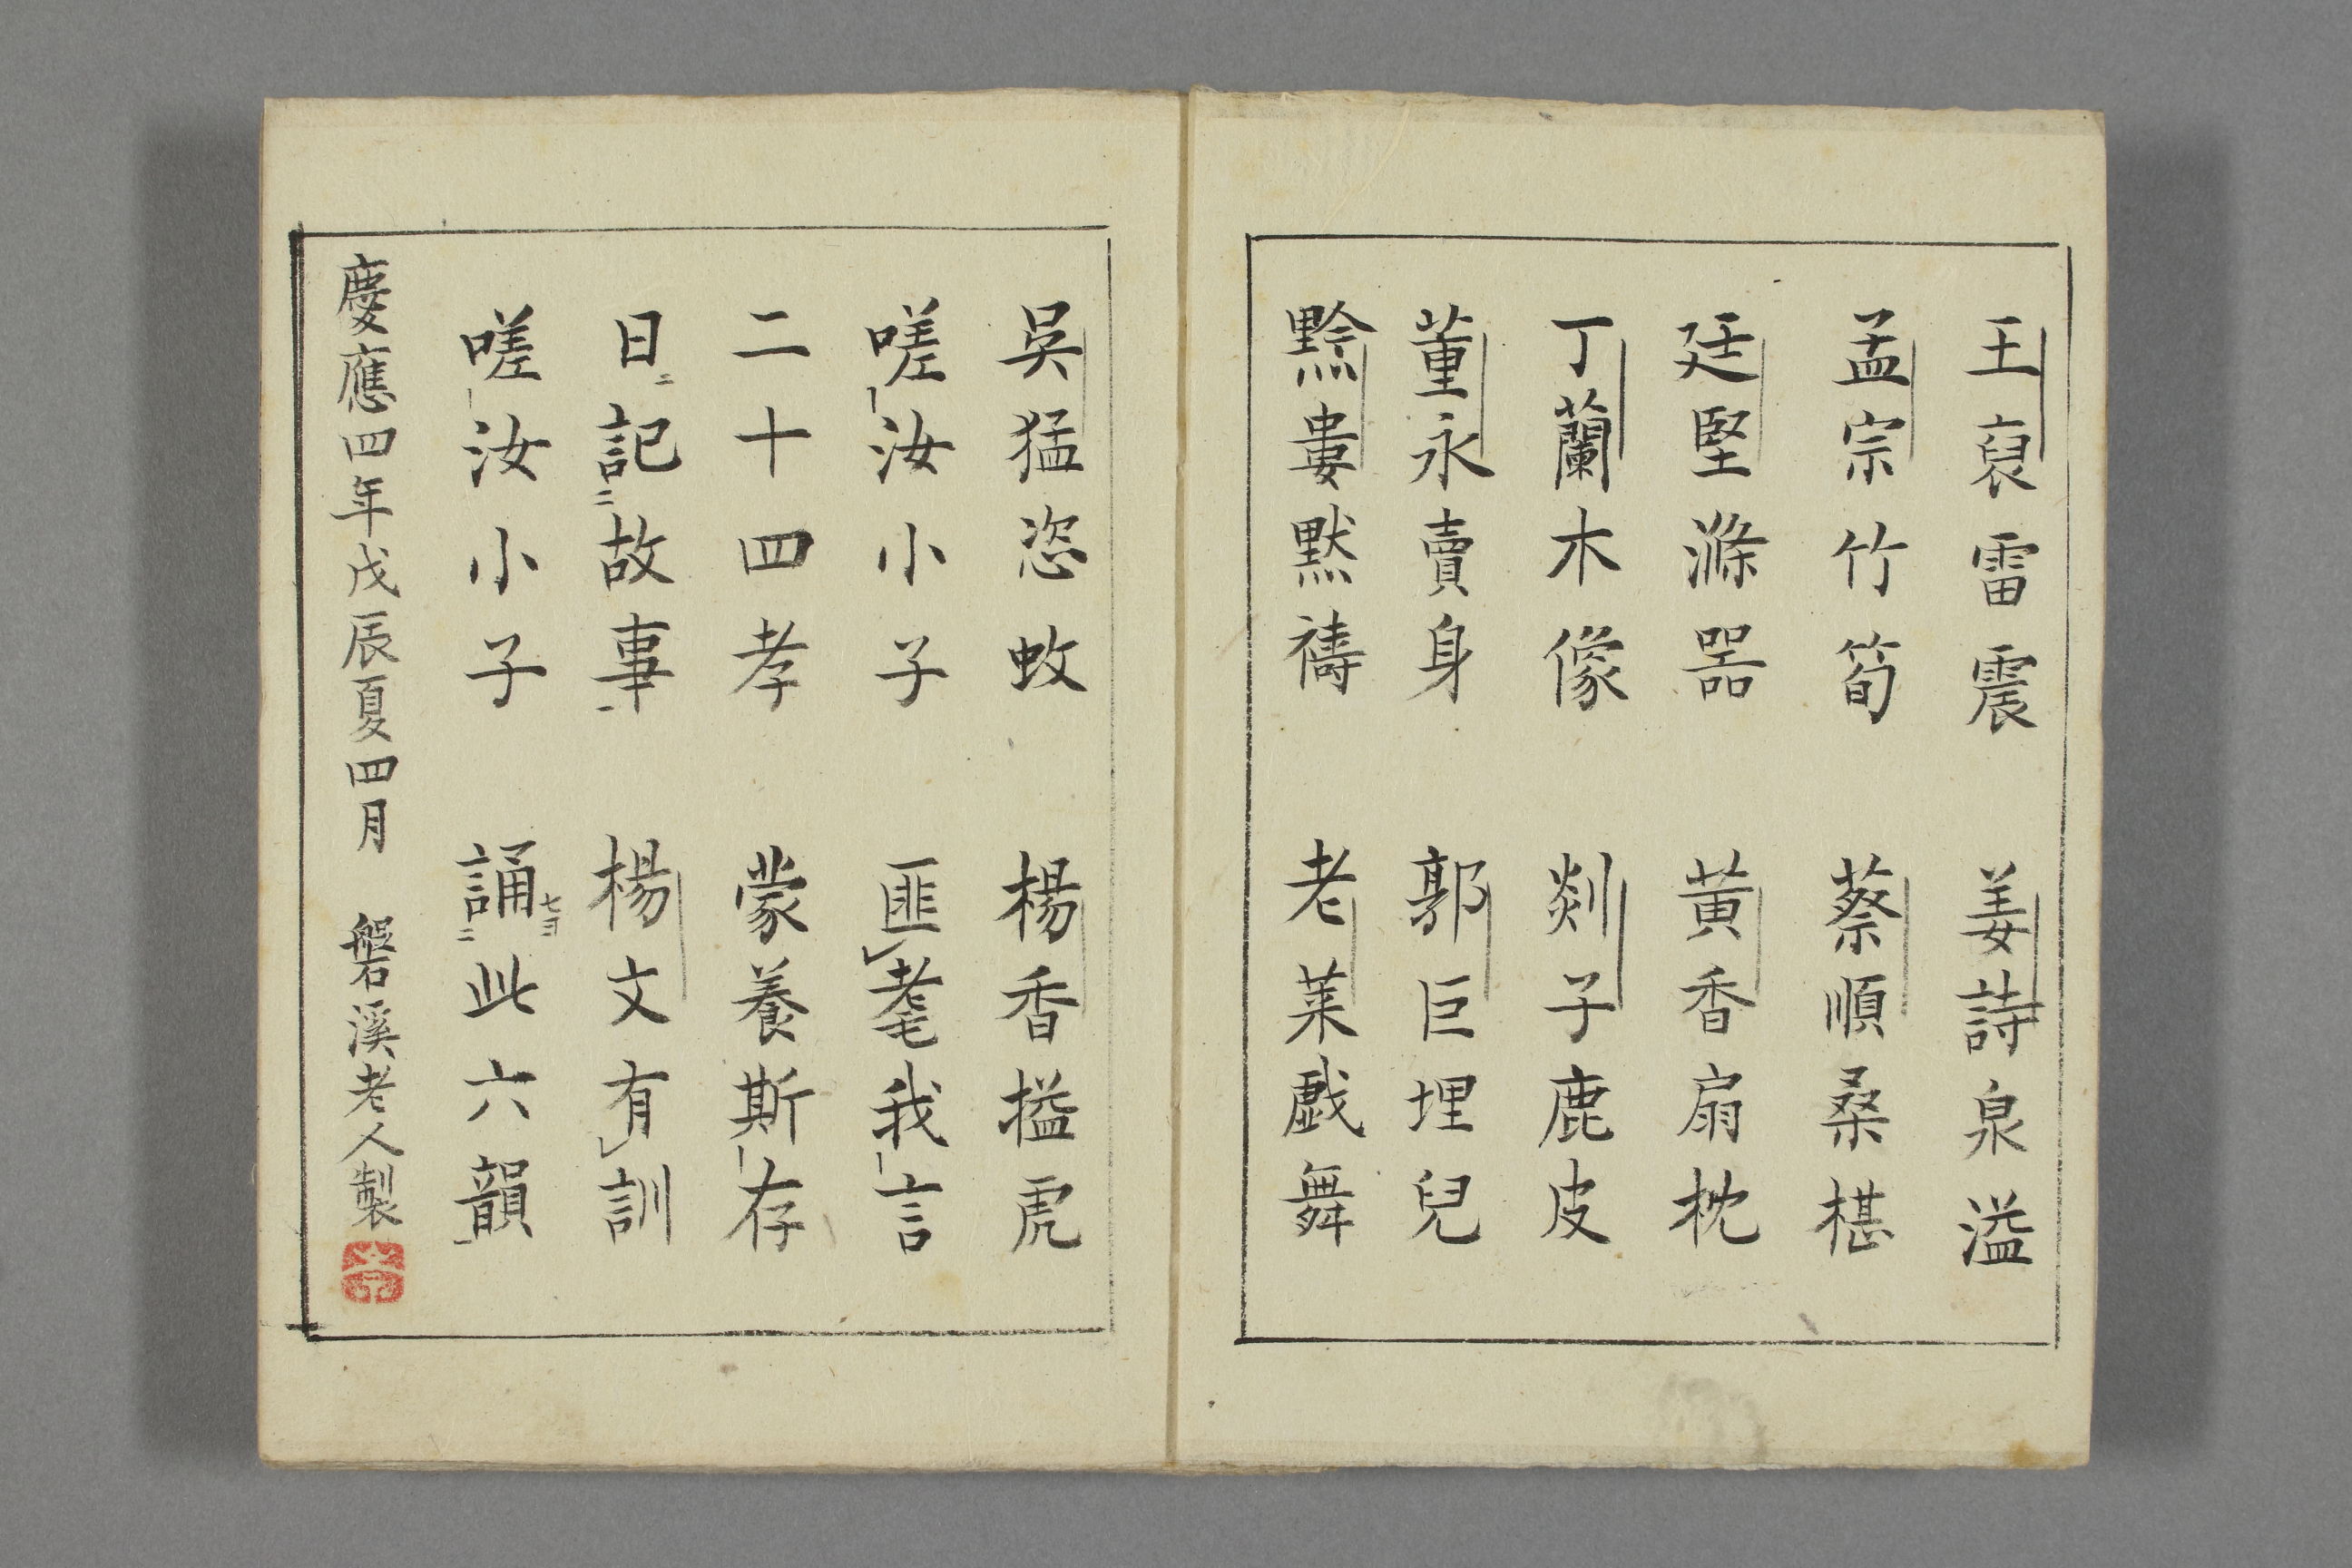 王裒雷震　姜詩泉溢
孟宗竹筍　蔡順桑椹
廷堅滌器　黃香扇枕
丁蘭木像　剡子鹿皮
董永賣身　郭巨埋兒
黔婁默禱　老萊戯舞
吳猛恣蚊　楊香搤虎
嗟汝小子　匪耄我言
二十四孝　蒙養斯存
日記故事　楊文有訓
嗟汝小子　誦此六韻
慶應四年戊辰夏四月　磐溪老人製